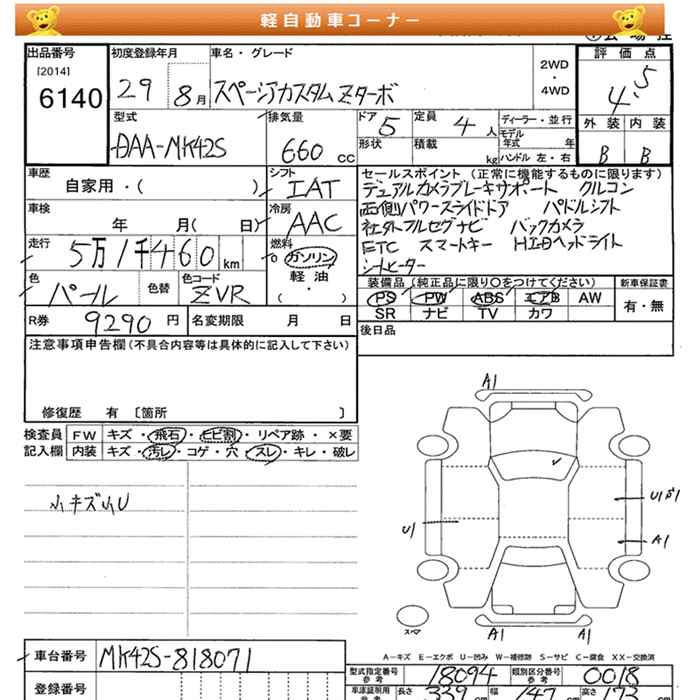 軽自動車コーナー
出品番号
[2014]
6140
初度登録年月
29 8月
車名・グレード
スペーシアカスタムZターボ
2WD
・
4WD
評価点
4.5
外装 内装
B B
型式
DAA-MK42S
排気量
660 cc
ドア
5
定員
4 人
ディーラー・並行
モデル
年式 年
形状
積載
kg
ハンドル 左・右
車歴
自家用・( )
シフト
IAT
車検
年 月( 日)
冷房
AAC
走行
5万1千460 km
燃料
ガソリン
軽・油
・
( )
色
パール
色替
色コード
ZVR
セールスポイント (正常に機能するものに限ります)
デュアルカメラブレーキサポート クルコン
両側パワースライドドア パドルシフト
社外フルセグナビ バックカメラ
ETC スマートキー HIDヘッドライト
シートヒーター
装備品 (純正品に限り○をつけてください)
PS PW ABS エアB AW
SR ナビ TV カワ
新車保証書
有・無
R券 9290 円
名変期限 月 日
後日品
注意事項申告欄 (不具合内容等は具体的に記入して下さい)
修復歴 有 〔箇所 〕
検査員
記入欄
FW キズ・飛石・ヒビ割・リペア跡・×要
内装 キズ・汚レ・コゲ・穴・スレ・キレ・破レ
小キズ小U
A1
U1
A1
U1
スマ
A1
A1
A-キズ E-エクボ U-凹み W-補修跡 S-サビ C-腐食 XX-交換済
車台番号
MK42S-818071
登録番号
型式指定番号
参考
18094
類別区分番号
参考
0018
長さ 339 cm 幅 147 cm 高さ